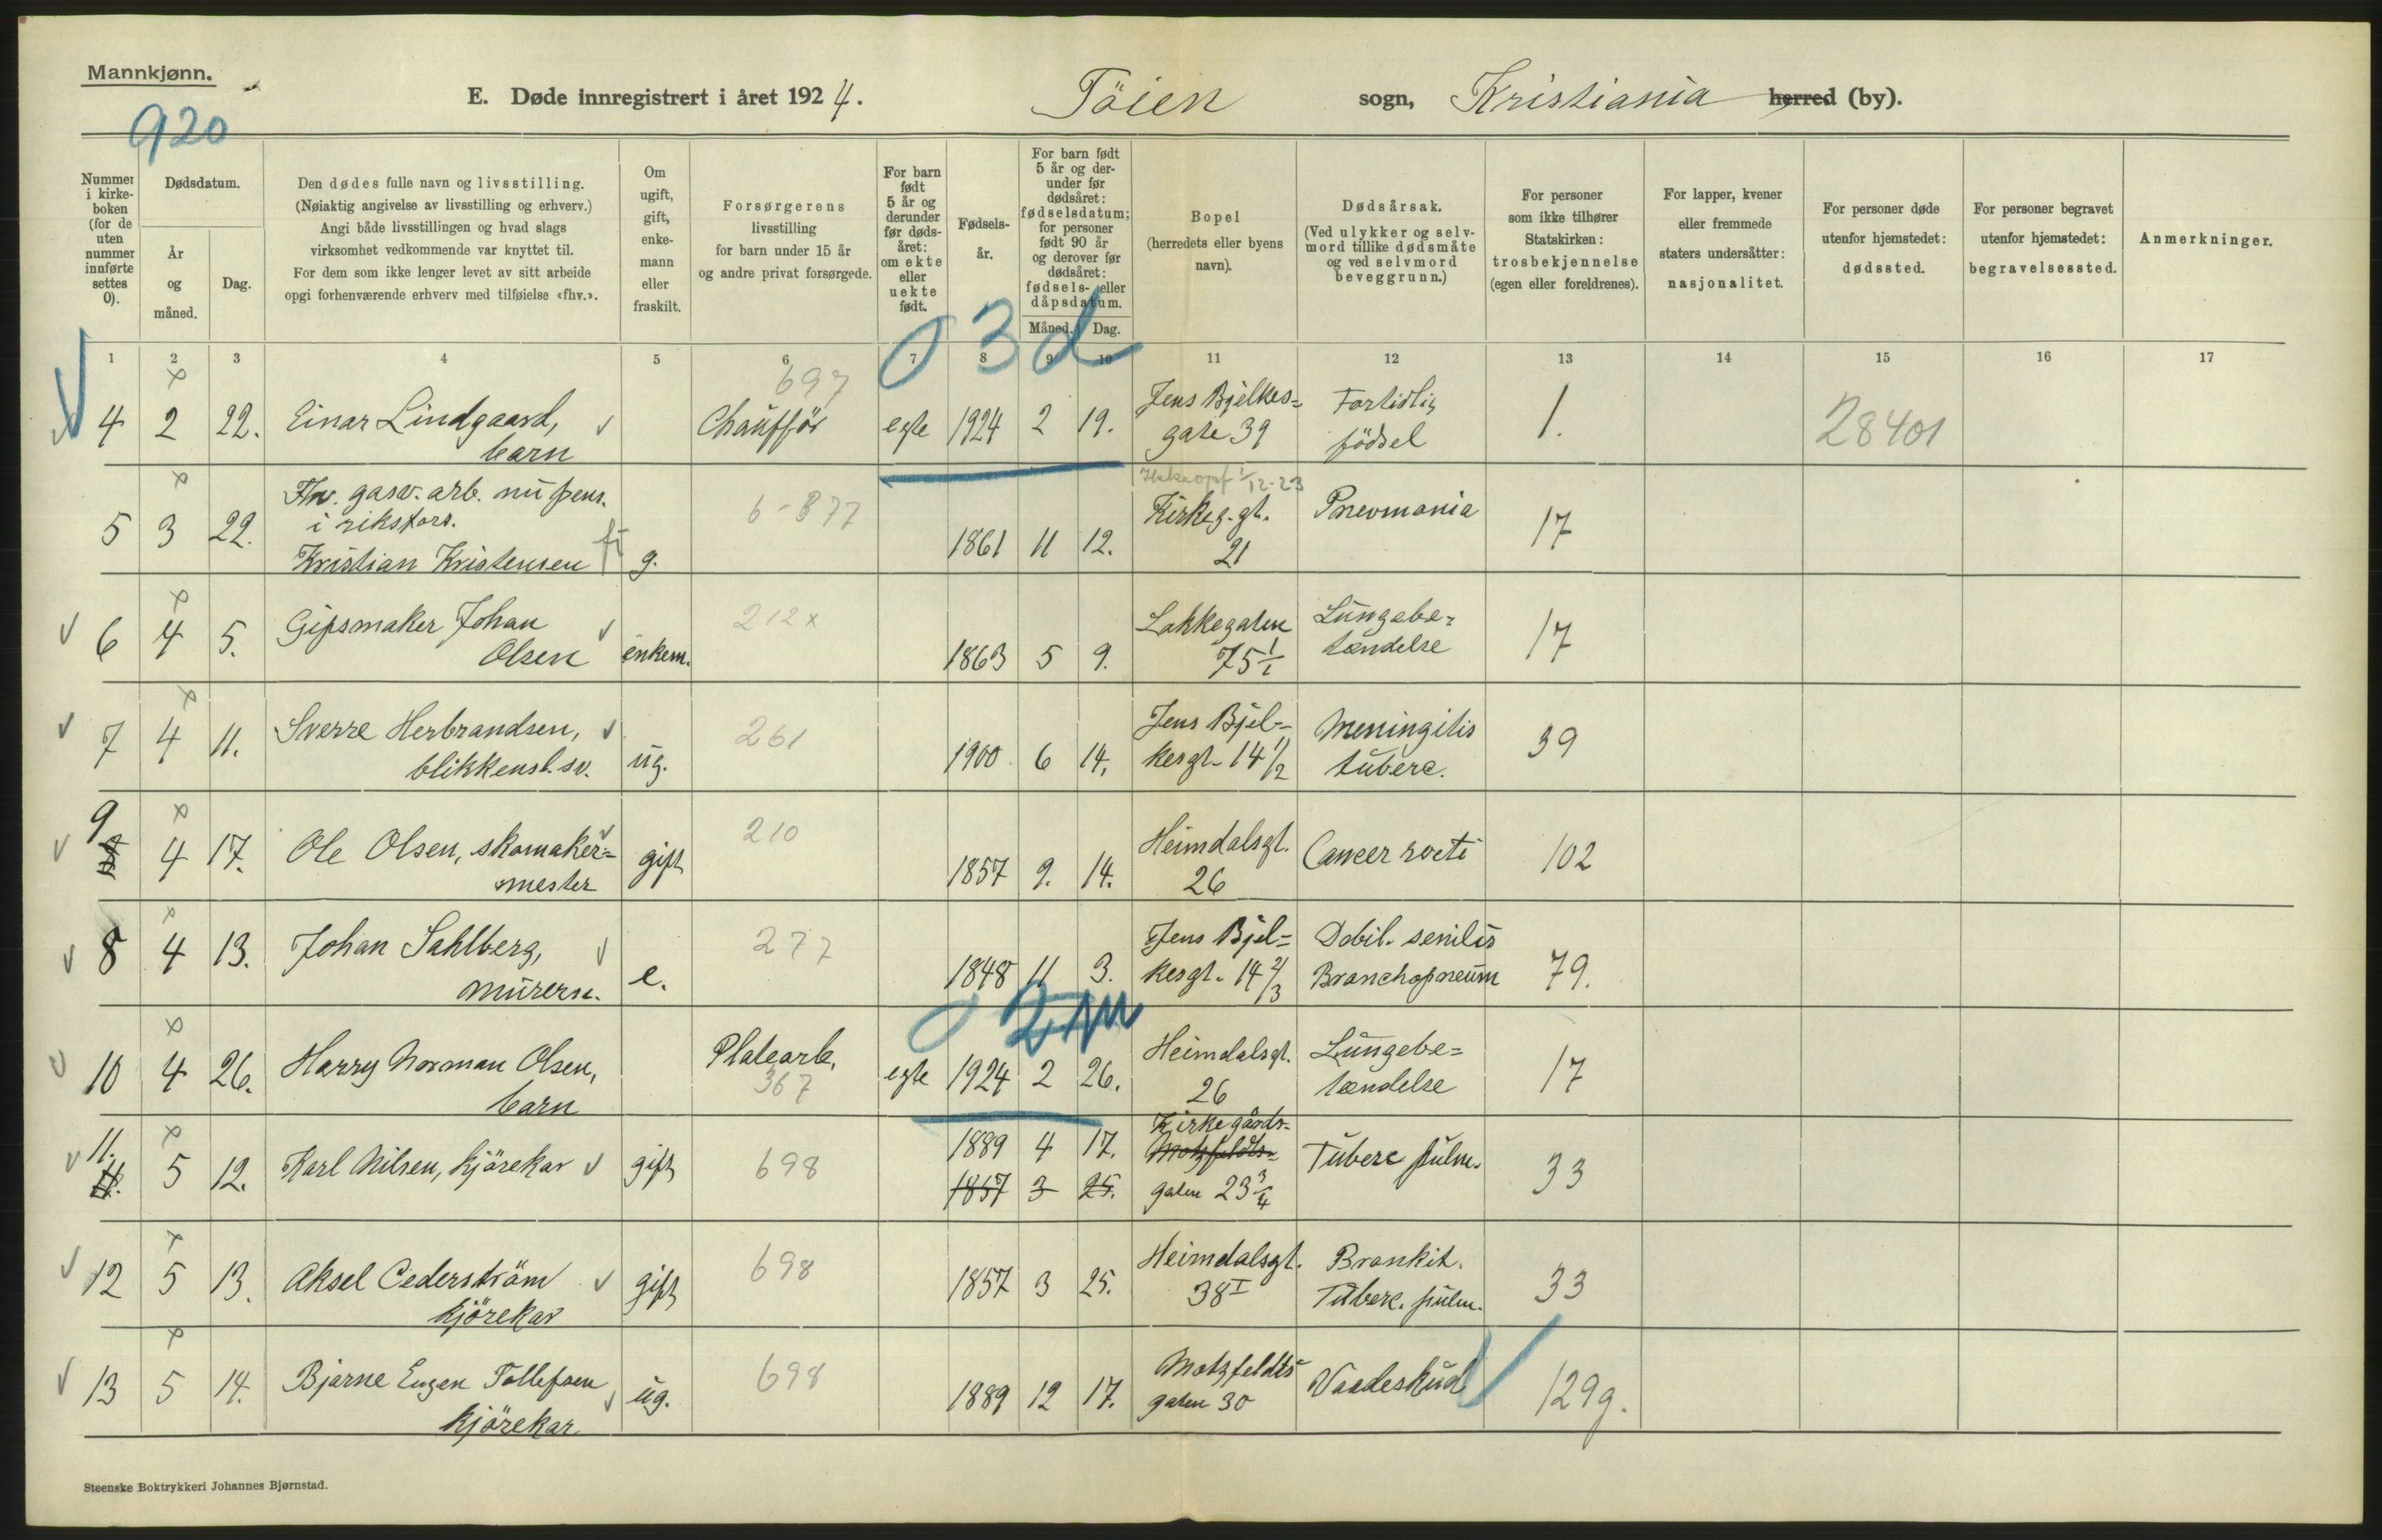 Mannkjønn.
E. Døde innregistrert i året 1924. Töien sogn, Kristiania herred (by).
920
Nummer i kirkeboken (for de uten nummer innførte settes 0).
Dødsdatum.
År og måned.
Dag.
Den dødes fulle navn og livsstilling.
(Nøiaktig angivelse av livsstilling og erhverv.)
Angi både livsstillingen og hvad slags
virksomhet vedkommende var knyttet til.
For dem som ikke lenger levet av sitt arbeide
opgi forhenværende erhverv med tilføielse «fhv.».
Om ugift, gift, enkemann eller fraskilt.
Forsørgerens
livsstilling
for barn under 15 år
og andre privat forsørgede.
For barn født 5 år og derunder før dødsåret: om ekte eller uekte født.
Fødselsår.
For barn født 5 år og derunder før dødsåret: fødselsdatum; for personer født 90 år og derover før dødsåret: fødsels- eller dåpsdatum.
Måned. Dag.
Bopel
(herredets eller byens
navn).
Dødsårsak.
(Ved ulykker og selv-
mord tillike dødsmåte
og ved selvmord
beveggrunn.)
For personer
som ikke tilhører
Statskirken:
trosbekjennelse
(egen eller foreldrenes).
For lapper, kvener
eller fremmede
staters undersåtter:
nasjonalitet.
For personer døde
utenfor hjemstedet:
dødssted.
For personer begravet
utenfor hjemstedet:
begravelsessted.
Anmerkninger.
1 2 3 4 5 6 7 8 9 10 11 12 13 14 15 16 17
0 3 d
697
4 2 22. Einar Lindgaard, Chauffør egte 1924 2 19. Jens Bjelkes= Fortidlig 1. 28401
barn gate 39 födsel
Fhv. gasv. arb. nu pens. 6-877 12-23
i riksfors. Kirkeg. gt. Pneomonia
5 3 22. Kristian Kristensen g. 1861 11 12. 21 17
6 4 5. Gipsmaker Johan 212x Lakkegaten Lungebe= 17
Olsen enkem. 1863 5 9. 75 1/1 tændelse
7 4 11. Sverre Herbrandsen, 261 Jens Bjel= Meningitis 39
blikkensl. sv. ug. 1900 6 14. kesgt. 14 1/2 tuberc.
9 4 17. Ole Olsen, skomaker= gift 210 1857 9. 14. Heimdalsgt. Cancer recti 102
mester 26
8 4 13. Johan Sahlberg, 277 Jens Bjel= Debil. senilis
murersv. e. 1848 11 3. kesgt. 14 2/3 Bronchopneum 79.
0 2 m
10 4 26. Harry Norman Olsen, Platearb. egte 1924 2 26. Heimdalsgt. Lungebe= 17
barn 367 26 tændelse
11. 5 12. Karl Nilsen, kjörekar gift 698 1889 4 17. Kirkegårds= Motzfeldts= Tuberc pulm. 33
11. 1857 3 25. gaten 23 3/4
12 5 13. Aksel Cederström gift 698 1857 3 25. Heimdalsgt. Bronkit. 33
kjörekar 38 I Tuberc. pulm.
13 5 14. Bjarne Eugen Tollefsen ug. 698 1889 12 17. Motzfeldts Vaadeskud 129g.
kjörekar gaten 30
Steenske Boktrykkeri Johannes Bjørnstad.